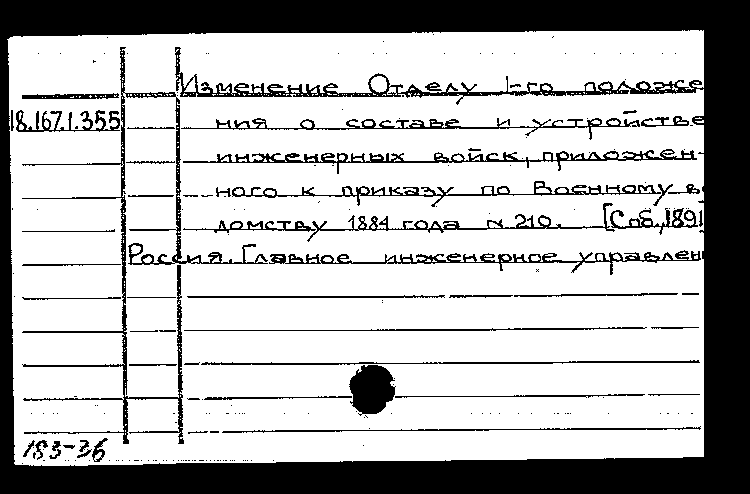 Изменение Отделу 1-го положе
18.167.1.355 ния о составе и устройстве
инженерных войск, приложен-
ного к приказу по Военному ве
домству 1884 года № 210. [Спб., 1891]
Россия. Главное инженерное управлен
183-36